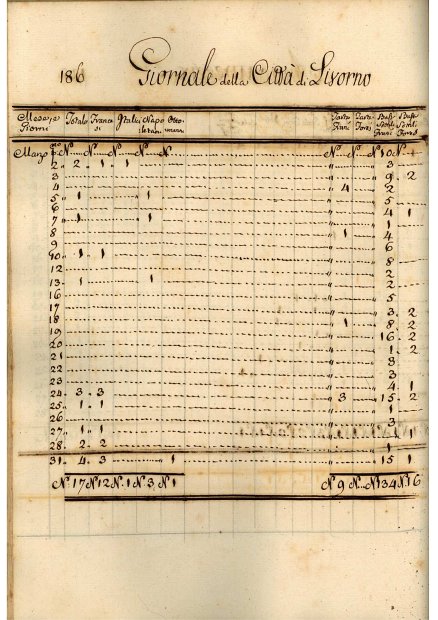 186 Giornale della Città di Livorno
Mese e Giorni Totale Francesi Italie Napoletan. Ottomann
Marzo 1° N° N° N° N° N° N° N° 10 N°
2 2 1 1
3 9 2
4 4 2
5 1 1 5
6 4 1
7 1 1 1
8 1 4
9 6
10 1 1 8
12 2
13 1 1 2
16 5
17 3 2
18 1 8 2
19 16 2
20 1 2
21 3
22 3
23 4 1
24 3 3 3 15 2
25 1 1 1
26 3
27 1 1 1
28 2 2 1
31 4 3 1 15 1
N° 17 N° 12 N° 1 N° 3 N° 1 N° 9 N° N° 134 N° 16